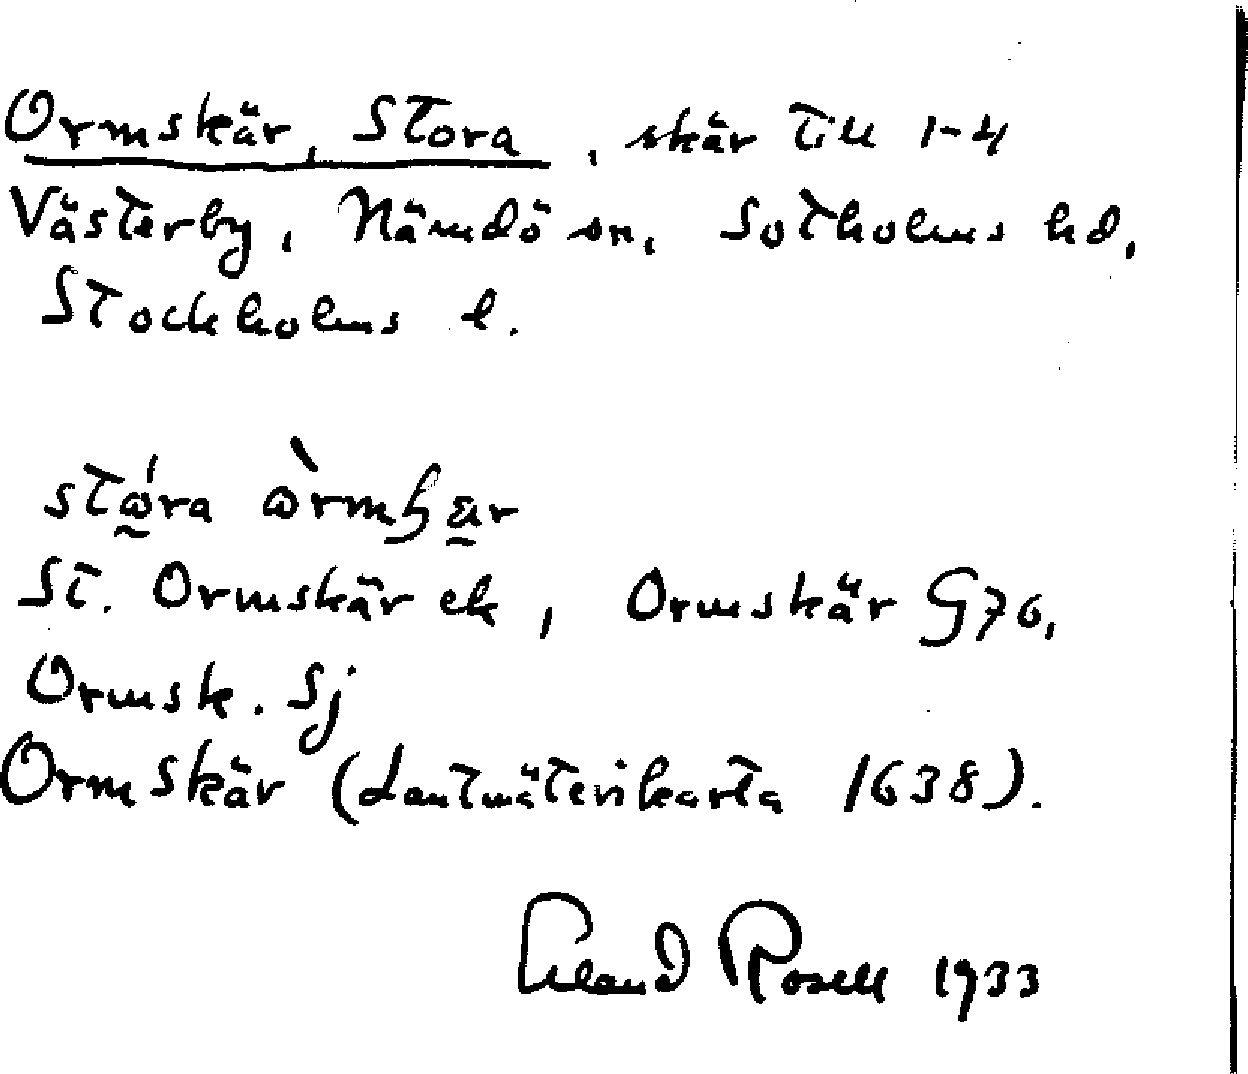 Ormskär, Stora, skär till 1-4
Västerby, Nämdö sn, Sotholms hd,
Stockholms l.
St. Ormskär ek, Ormskär G76,
Ormsk. Sj
Ormskär (Lantmäterikarta 1638).
Erland Rosell 1933